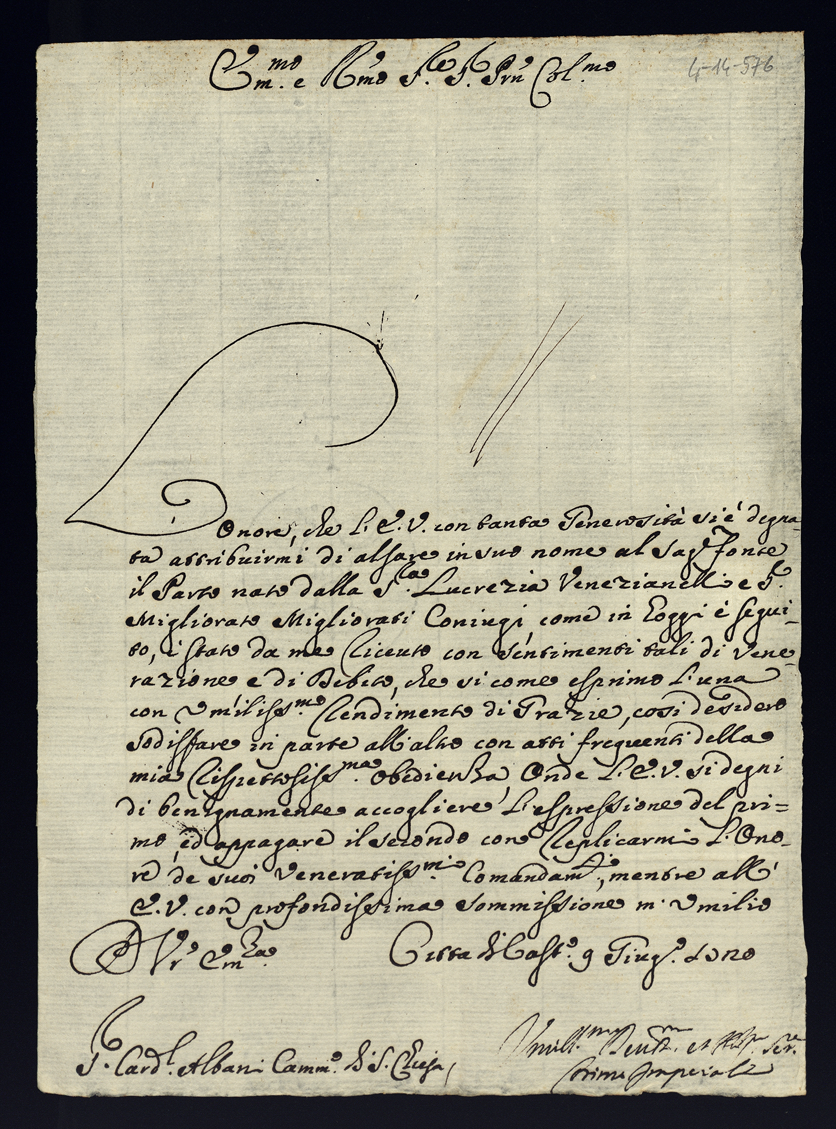 Em.mo e R.mo S.re S. Prn̄ Col.mo
4-14-576
L'Onore, che l'E.V. con tanta Generosità si è degna-
ta attribuirmi di alsare in suo nome al Sag.o Fonte
il Parto nato dalla S.ra Lucrezia Venezianelli e S.r
Migliorato Migliorati Coniugi come in Loggi è segui-
to, è stato da me riceuto con sentimenti tali di vene
razione e di Debito, che si come esprimo l'una
con Vmiliss.mo rendimento di Grazie, così desidero
sodisfare in parte all'altro con atti frequenti della
mia rispettosiss.ma obedienza, Onde l'E.V. si degni
di benignamente accogliere l'espressione del pri=
mo, ed appagare il secondo con replicarmi l'Ono-
re de suoi veneratiss.mi Comandam.ti, mentre all'
E.V. con profondissima sommissione m'umilio
D V.ra Em.za Citta di Cast.o 9 Giug.o 1720
S. Card.l Albani Camm.o di S. Chiesa
Vmill.mo Deu.mo et Obb.mo Ser.e
Imperiale